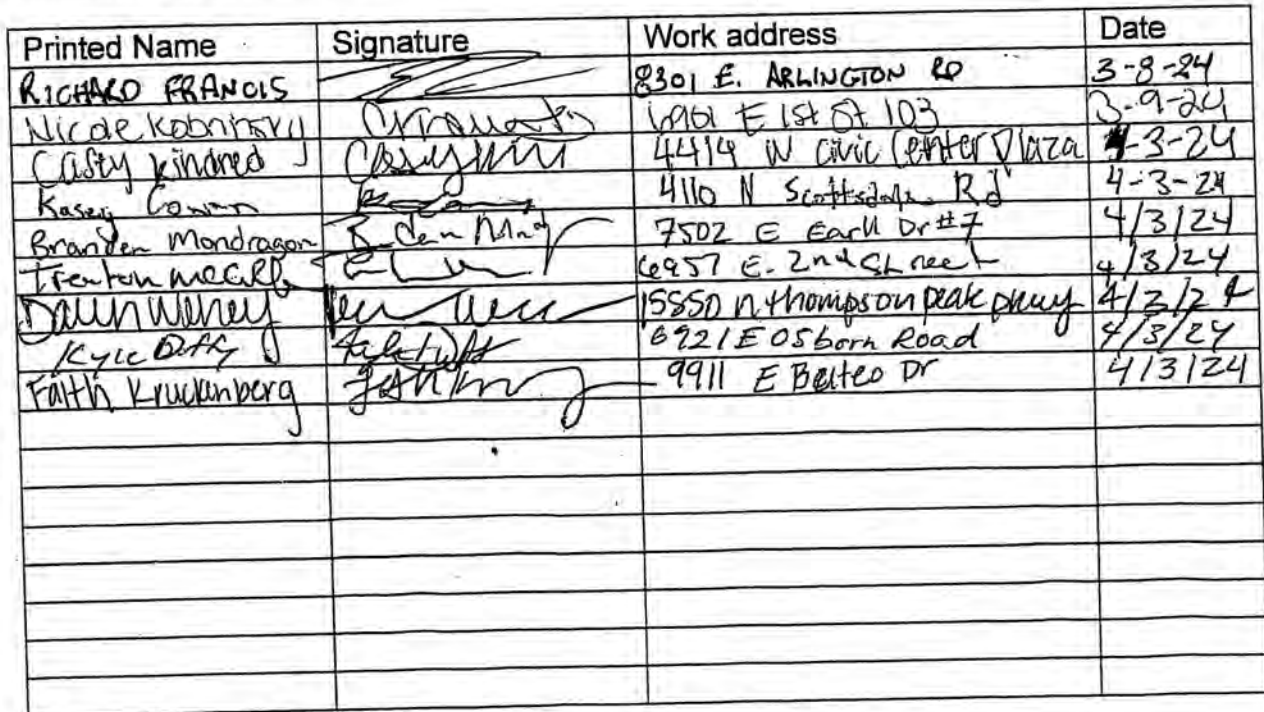 Printed Name Signature Work address Date
RICHARD FRANCIS 8301 E. ARLINGTON RD 3-8-24
Nicole 6901 E 1st St 103 3-9-24
Casey Kindred Casey 4414 N Civic Center Plaza 4-3-24
Kasey Cowan 4110 N Scottsdale Rd 4-3-24
Branden Mondragon 7502 E Earll Dr #7 4/3/24
Trenton 6957 E. 2nd Street 4/3/24
Dawn 15850 n thompson peak pkwy 4/3/24
Kyle Duffy 6921 E Osborn Road 4/3/24
Faith Kruckenberg 9911 E Dr 4/3/24